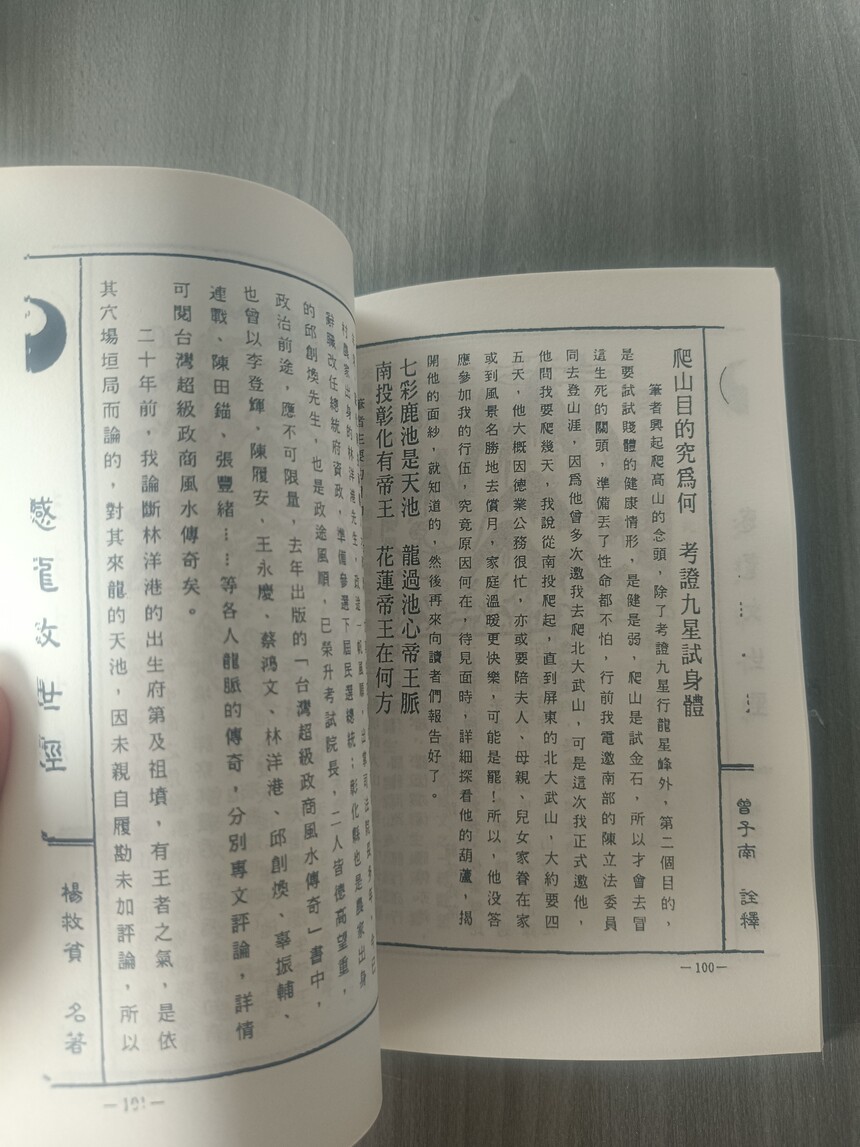 曾子南 詮釋
爬山目的究爲何 考證九星試身體
筆者興起爬高山的念頭，除了考證九星行龍星峰外，第二個目的，
是要試試賤體的健康情形，是健是弱，爬山是試金石，所以才會去冒
這生死的關頭，準備丟了性命都不怕，行前我電邀南部的陳立法委員
同去登山涯，因爲他曾多次邀我去爬北大武山，可是這次我正式邀他，
他問我要爬幾天，我說從南投爬起，直到屏東的北大武山，大約要四
五天，他大概因德業公務很忙，亦或要陪夫人、母親、兒女家眷在家
或到風景名勝地去償月，家庭溫暖更快樂，可能是罷！所以，他沒答
應參加我的行伍，究竟原因何在，待見面時，詳細探看他的葫蘆，揭
開他的面紗，就知道的，然後再來向讀者們報告好了。
七彩鹿池是天池 龍過池心帝王脈
南投彰化有帝王 花蓮帝王在何方
—100—
村農家出身的林洋港先生，政途一帆風順，出掌司法院長多年，今已
辭職改任總統府資政，準備參選下屆民選總統；彰化縣也是農家出身
的邱創煥先生，也是政途風順，已榮升考試院長，二人皆德高望重，
政治前途，應不可限量，去年出版的「台灣超級政商風水傳奇」書中，
也曾以李登輝、陳履安、王永慶、蔡鴻文、林洋港、邱創煥、辜振輔、
連戰、陳田錨、張豐緒……等各人龍脈的傳奇，分別專文評論，詳情
可閱台灣超級政商風水傳奇矣。
二十年前，我論斷林洋港的出生府第及祖墳，有王者之氣，是依
其穴場垣局而論的，對其來龍的天池，因未親自履勘未加評論，所以
感龍救世經
楊救貧 名著
—101—